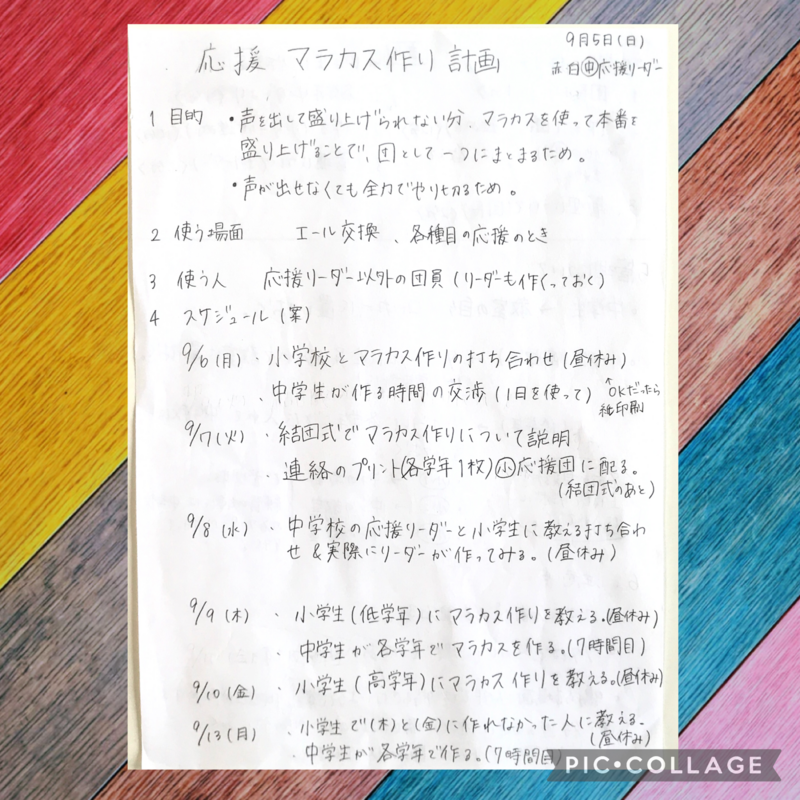 9月5日(日)
応援 マラカス作り計画
赤白㊥応援リーダー
1 目的 ・声を出して盛り上げられない分、マラカスを使って本番を
盛り上げることで、団として一つにまとまるため。
・声が出せなくても全力でやり切るため。
2 使う場面 エール交換、各種目の応援のとき
3 使う人 応援リーダー以外の団員(リーダーも作くっておく)
4 スケジュール(案)
9/6(月)・小学校とマラカス作りの打ち合わせ(昼休み)
・中学生が作る時間の交渉(1日を使って)
↑OKだったら
紙印刷
9/7(火)・結団式でマラカス作りについて説明
・連絡のプリント(各学年1枚)㊙応援団に配る。
(結団式のあと)
9/8(水)・中学校の応援リーダーと小学生に教える打ち合わ
せ&実際にリーダーが作ってみる。(昼休み)
9/9(木)・小学生(低学年)にマラカス作りを教える。(昼休み)
・中学生が各学年でマラカスを作る。(7時間目)
9/10(金)・小学生(高学年)にマラカス作りを教える。(昼休み)
9/13(月)・小学生で(木)と(金)に作れなかった人に教える。
(昼休み)
・中学生が各学年で作る。(7時間目)
PIC•COLLAGE